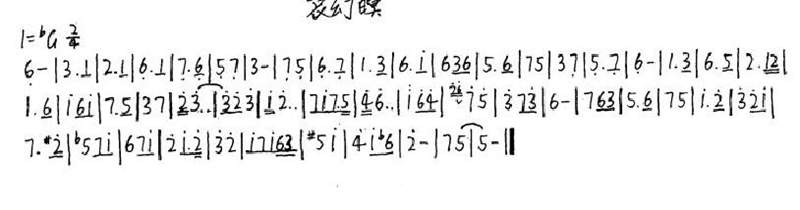 夜幻暝
1=ᵇG 2/4
6-|3.1|2.1|6.1|7.6|57|3-|75|6.7|1.3|6.i|636|5.6|75|37|5.7|6-|1.3|6.5|2.12|
1.6|i6i|7.5|37|23..|323|12..|7i75|46..|i64|2i75|373|6-|763|5.6|75|i.2|32i|
7.#2|b57i|67i|2i.2|32|i7i63|#5i|4ib6|2-|75|5-‖